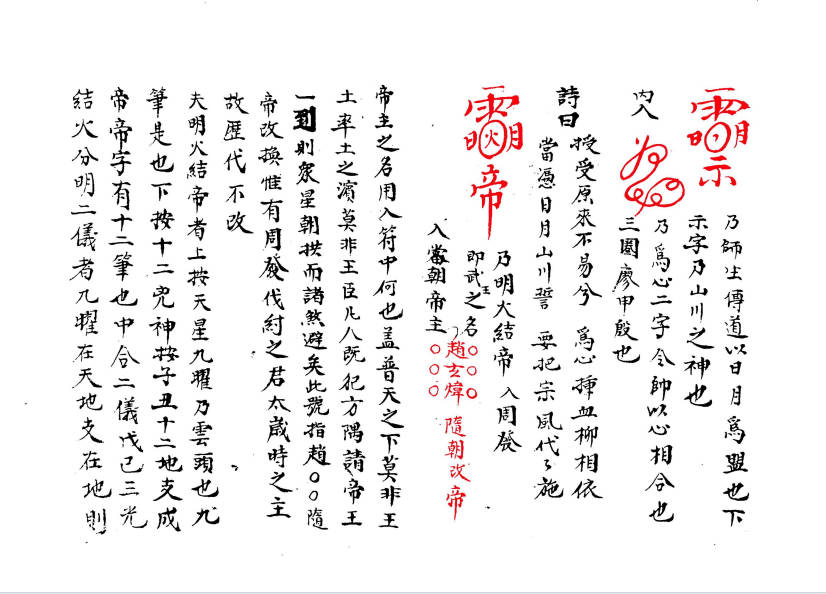 示
乃師生傳道以日月爲盟也下
示字乃山川之神也
内入
乃爲心二字令師以心相合也
三圓廖甲殷也
詩曰
授受原來不易兮 爲心揷血柳相依
當憑日月山川誓 要把宗風代々施
日火月
帝
乃明火結帝 入周發
即武王之名〇〇〇
入當朝帝主〇〇〇
趙玄煒 隨朝改帝
帝主之名用入符中何也盖普天之下莫非王
土率土之濱莫非王臣凡人既犯方隅請帝王
一到則衆星朝拱而諸煞避矣此號指趙〇〇隨
帝改換惟有周發伐紂之君太歲時之主
故歷代不改
夫明火結帝者上按天星九曜乃雲頭也九
筆是也下按十二宛神按子丑十二地支成
帝帝字有十二筆也中合二儀戊己三光
結火分明二儀者九曜在天地支在地則